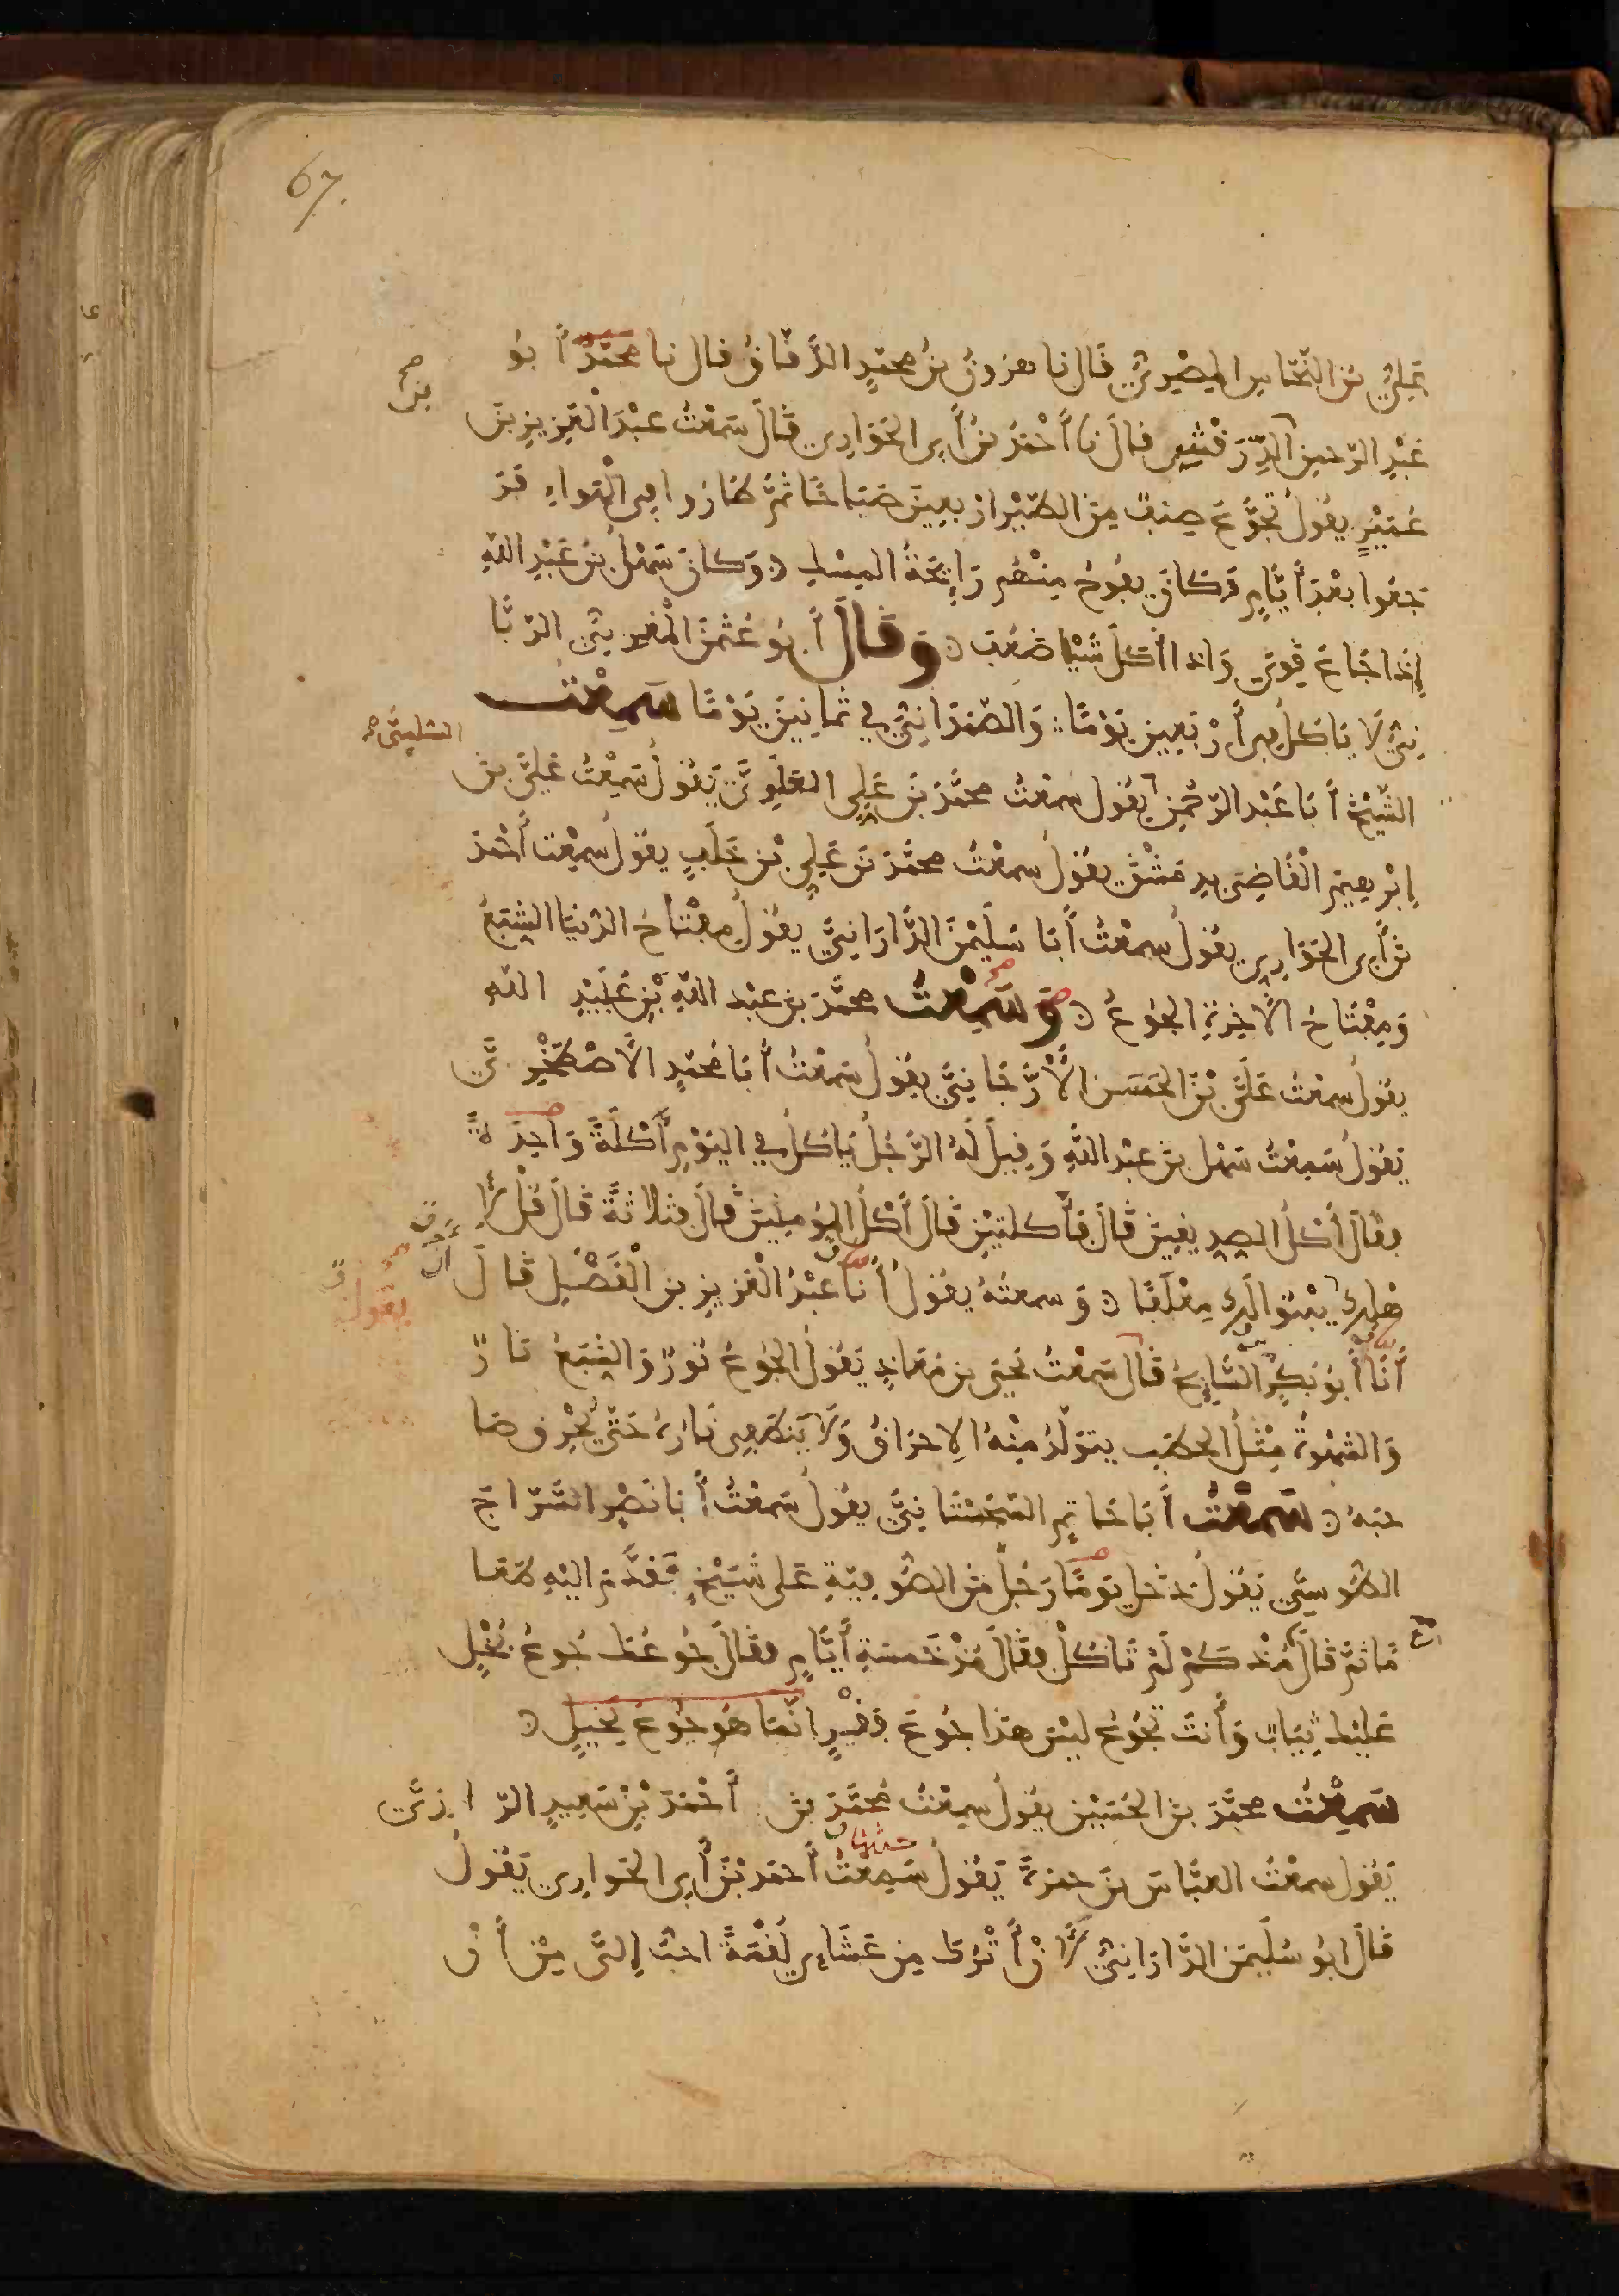 67.
عَلِيُّ بْنُ النَّحَّاسِ المِصْرِيُّ قَالَ نا هرُونُ بْنُ محمّدٍ الدَّقَّاقُ قال نا محمّدٌ أَبُو
عَبْدِ الرّحمنِ الدِّرَفْشِيّ قالَ نَا أَحْمَدُ بْنُ أَبِي الحَوَارِي قَالَ سَمِعْتُ عَبْدَ الْعَزِيزِ بنَ
بن صح
عُمَيْرٍ يَقُولُ تَجَوَّعَ صِنفٌ مِنَ الطّيْرِ أَرْبعِينَ صَبَاحًا ثمَّ طَارُوا في الْهَوَاءِ فَرَ
جَعُوا بعْدَ أَيَّامٍ فَكَانَ يَفُوحُ مِنْهُم رَائِحَةُ المِسْكِ وَكانَ سَهْلُ بْنُ عَبْدِ اللّهِ
إِذَا جَاعَ قَوِيَ وَإذا أَكَلَ شَيْئا ضَعُفَ وَقَالَ أَبُو عُثْمنَ الْمَغْرِبِيُّ الرّبَّا
نِيُّ لَا يَأْكُلُ في أَرْبَعِينَ يَوْمًا وَالصَّمَدَانِيُّ في ثمَانِينَ يَوْمًا سَمِعْتُ
الشّيْخَ أَبَا عَبْدِ الرّحْمنِ يَقُول سمعتُ محمَّدَ بْنَ عَلِيٍّ العَلَوِيَّ يَقُولُ سَمِعْتُ عَلِيَّ بن
السّلميّ صح
إِبْرهِيمَ الْقَاضِيَ بدِمَشْقَ يقُولُ سمعْتُ محمَّدَ بنَ عَلِيِّ بْنِ خَلَفٍ يقُولُ سمِعْتُ أَحْمَدَ
بْنَ أَبِي الحَوَارِي يقُولُ سمِعْتُ أَبَا سُلَيْمنَ الدَّارَانِيَّ يقُولُ مِفْتَاحُ الدّنْيَا الشِّبَعُ
وَمِفْتَاحُ الْآخِرَةِ الجُوعُ وَسَمِعْتُ محمَّدَ بنَ عبْدِ اللّهِ بْنِ عُبَيْدِ اللّهِ
يقُولُ سمعْتُ عَلِيَّ بْنَ الحَسَن الأَرَّجَانِيَّ يقُولُ سَمعْتُ أَبَا مُحمّدٍ الْأَصْطَخْرِيَّ
يَقُولُ سَمِعْتُ سَهْلَ بنَ عبْدِ اللَّهِ وَقِيلَ لَهُ الرَّجُلُ يَأْكُلُ في اليَوْمِ أَكْلَةً وَاحِدَةً
فقَالَ أَكْلُ الصِّدِّيقِينَ قَالَ فَأَكْلَتَيْنِ قَالَ أَكْلُ المُؤمِنِينَ قالَ فثَلَاثَةً قَالَ قُلْ لأَ
هْلِكَ يَبْنُوا لَكَ مِعْلَفًا وَسمعتُهُ يقُولُ أنا عَبْدُ الْعَزِيزِ بن الْفَضْلِ قَالَ
يقول
أَنَا أَبُو بَكْرٍ السَّايِحُ قَالَ سَمعْتُ يَحْيَى بن مُعَاذٍ يَقُولُ الجُوعُ نُورٌ وَالشِّبَعُ نَارٌ
وَالشَّهْوَةُ مِثْلُ الحطَبِ يتوَلَّدُ مِنْهُ الإحرَاقُ وَلَا يَنطَفِي نَارُهُ حَتَّى يُحْرِقَ صَا
حبَهُ سَمِعْتُ أَبَا حَاتِمٍ السّجِسْتَانِيَّ يقُولُ سَمعْتُ أَبا نَصْرٍ السّرَّاجَ
الطّوسيَّ يَقُولُ دَخَلَ يَوْمًا رَجُلٌ مِنَ الصُّوفِيّةِ عَلَى شَيْخٍ فَقَدَّمَ إليْهِ طعَا
مًا ثمَّ قَالَ مُنْذ كَمْ لَمْ تَأْكُلْ فقَالَ مُنْذُ خَمسَةِ أَيَّامٍ فقَالَ جُوعُكَ جُوعُ بُخْلٍ
عَلَيْكَ ثِيَابٌ وَأَنتَ تجُوعُ ليْسَ هذَا جُوعَ فَقْرٍ إنّمَا هُوَ جُوعُ بُخْلٍ
سَمِعْتُ محمَّدَ بن الحُسَيْنِ يقُولُ سمِعْتُ مُحَمَّدَ بنَ أَحْمَدَ بْنِ سَعِيدٍ الرَّازِيَّ
يَقُولُ سمعْتُ العبَّاسَ بنَ حمزةَ يَقُولُ سَمِعْتُ أَحمَدَ بْنَ أَبِي الحَوَارِي يَقُولُ
حدثنا
قَالَ أَبُو سُلَيْمنَ الدَّارَانِيُّ لَأَنْ أَتْرُكَ مِن عَشَاءِي لُقْمَةً أحَبُّ إِلَيَّ مِنْ أَنْ